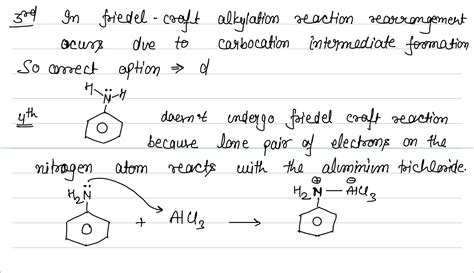 3rd In friedel-craft alkylation reaction rearrangement
ocurs due to carbocation intermediate formation
So correct option ⇒ d
H N̈ H
4th doesn't undergo friedel craft reaction
because lone pair of electrons on the
nitrogen atom reacts with the aluminium trichloride.
H₂N̈ + AlCl₃ → H₂N⊕ — AlCl₃⊖